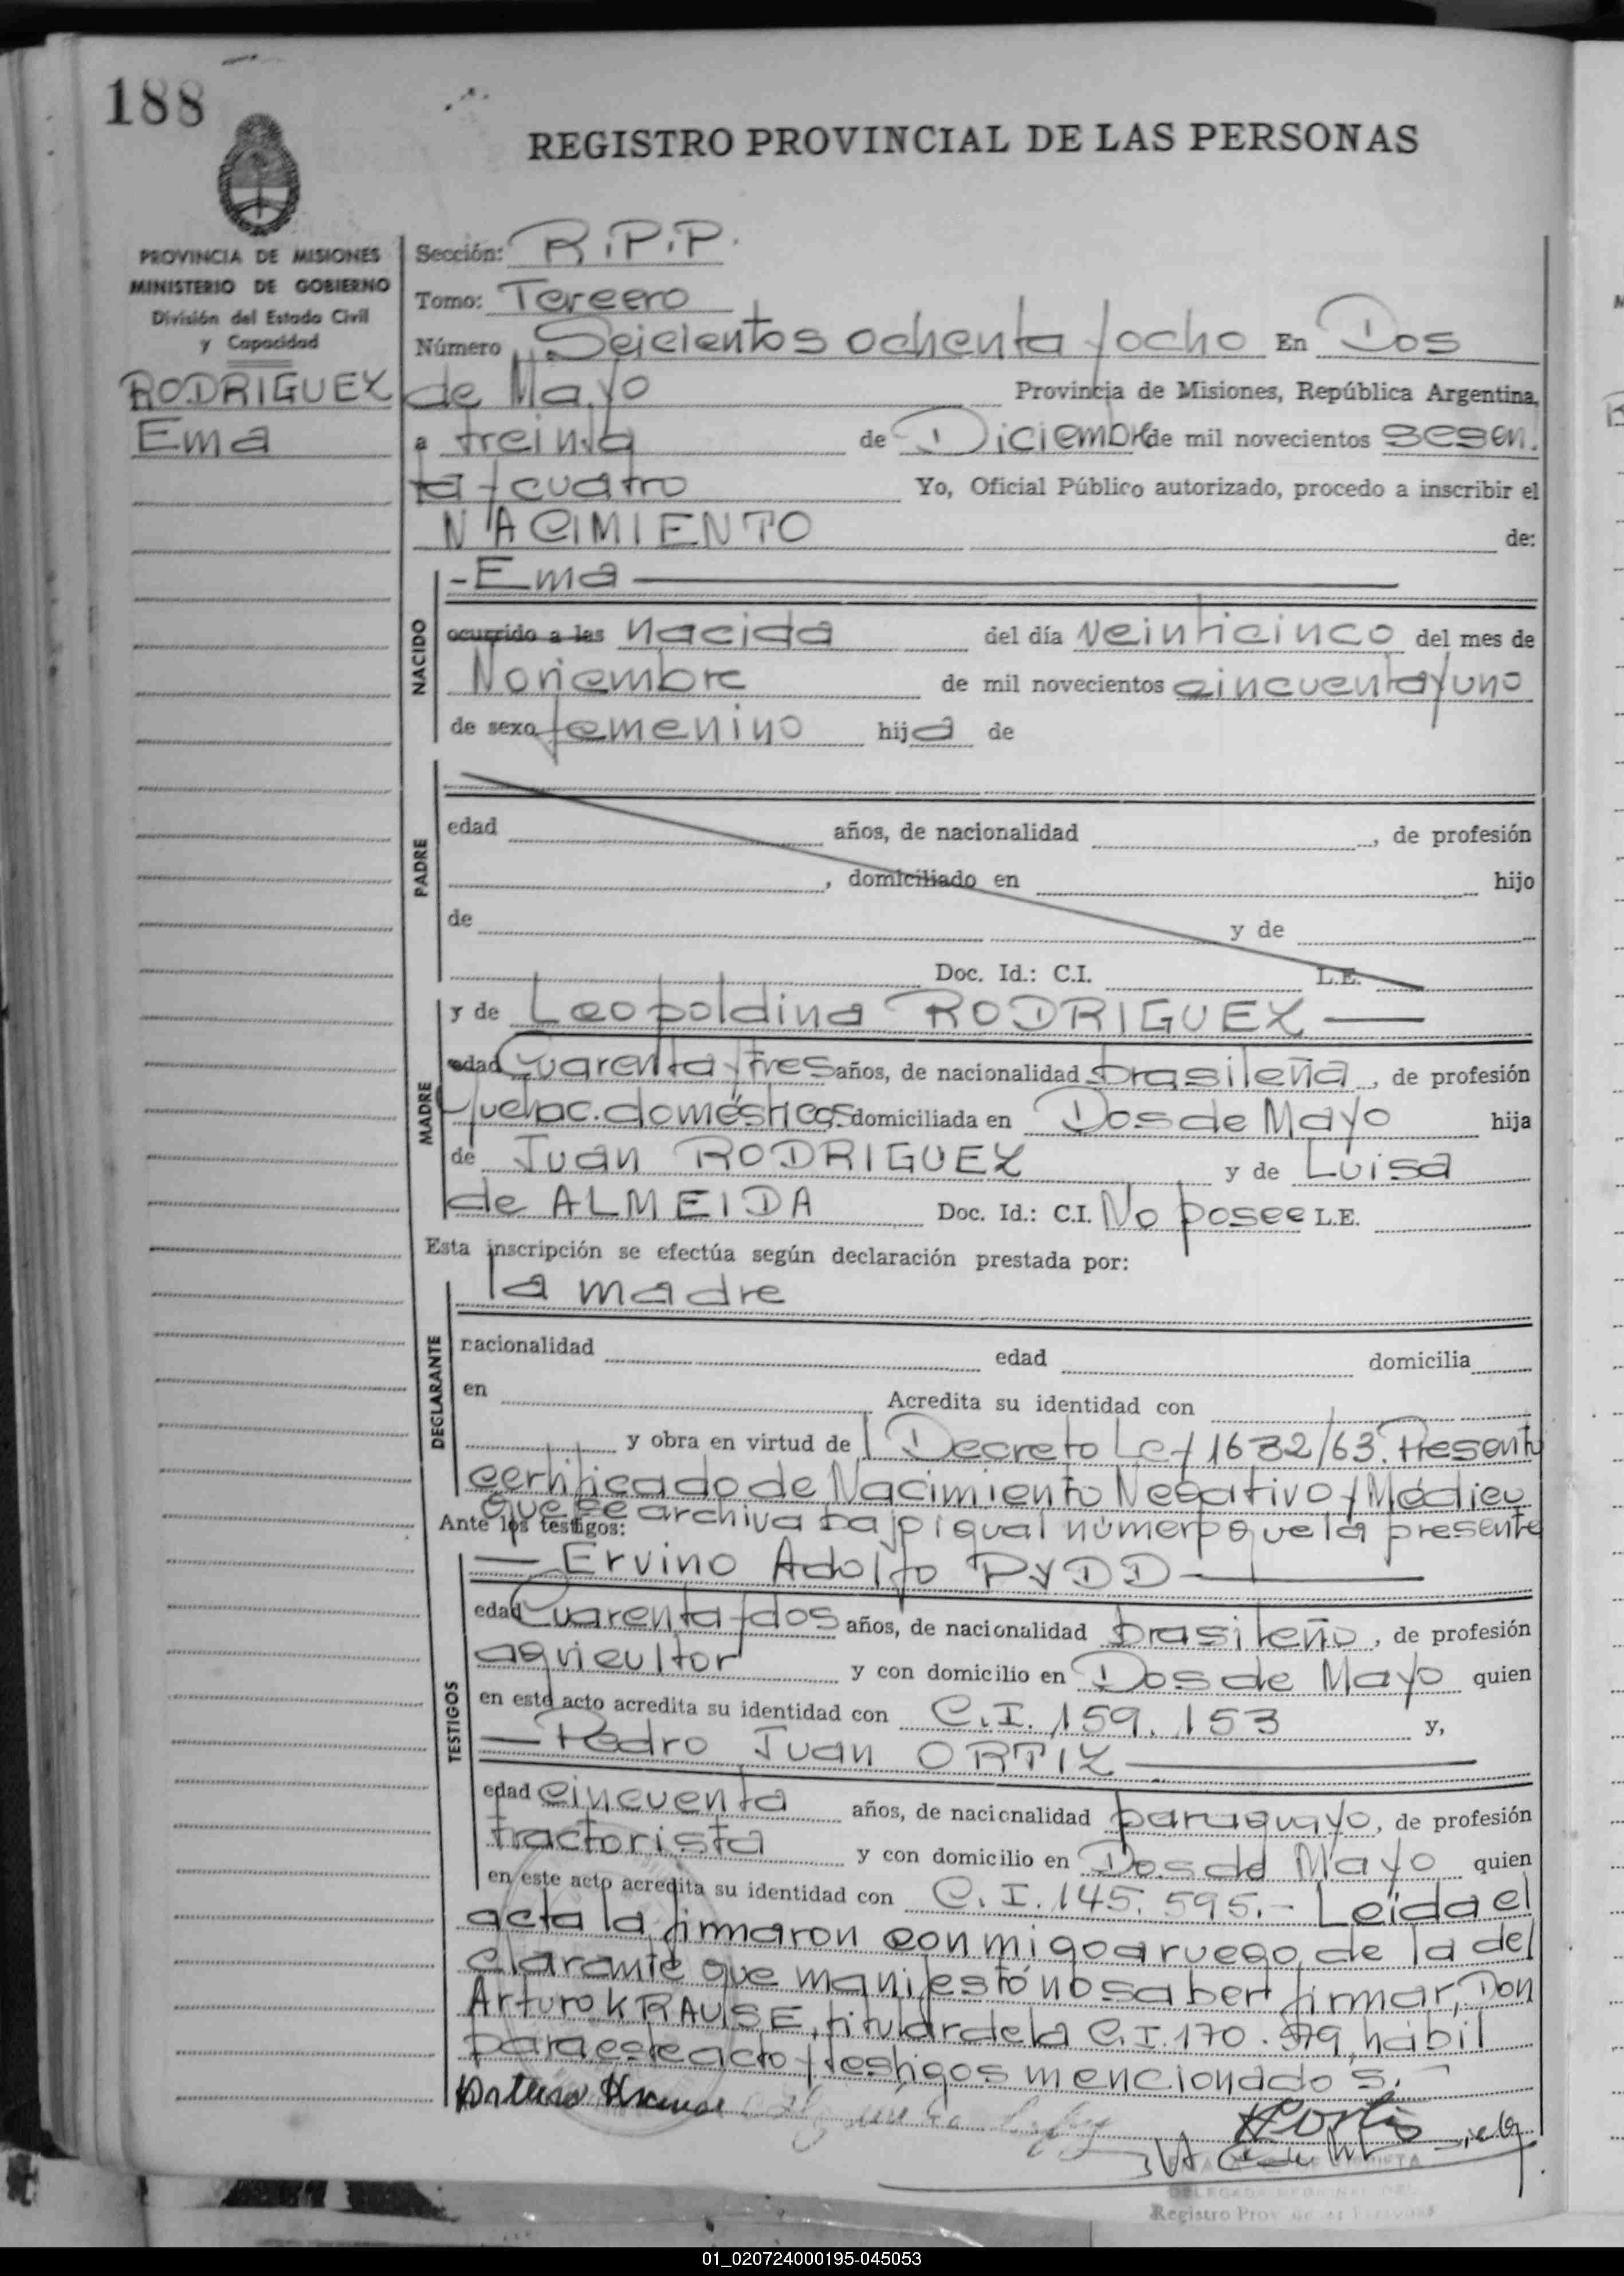 188
REGISTRO PROVINCIAL DE LAS PERSONAS
PROVINCIA DE MISIONES
MINISTERIO DE GOBIERNO
División del Estado Civil
y Capacidad
RODRIGUEZ
Ema
Sección: R.P.P.
Tomo: Tercero
Número Seicientos ochenta y ocho En Dos
de Mayo Provincia de Misiones, República Argentina,
a treinta de Diciembre de mil novecientos sesen.
ta y cuatro Yo, Oficial Público autorizado, procedo a inscribir el
NACIMIENTO de:
NACIDO
-Ema
ocurrido a las nacida del día veinticinco del mes de
Noviembre de mil novecientos cincuenta y uno
de sexo femenino hija de
PADRE
edad años, de nacionalidad , de profesión
, domiciliado en hijo
de y de
Doc. Id.: C.I. L.E.
MADRE
y de Leopoldina RODRIGUEZ
edad Cuarenta y tres años, de nacionalidad brasileña, de profesión
quehac. domésticos domiciliada en Dos de Mayo hija
de Juan RODRIGUEZ y de Luisa
de ALMEIDA Doc. Id.: C.I. No posee L.E.
Esta inscripción se efectúa según declaración prestada por:
DECLARANTE
la madre
nacionalidad edad domicilia
en Acredita su identidad con
y obra en virtud del Decreto Ley 1632/63. Presenta
certificado de Nacimiento Negativo y Médico
que se archiva bajo igual número que la presente
Ante los testigos:
TESTIGOS
Ervino Adolfo PYDD
edad Cuarenta y dos años, de nacionalidad brasileño, de profesión
agricultor y con domicilio en Dos de Mayo quien
en este acto acredita su identidad con C.I. 159.153 y,
Pedro Juan ORTIZ
edad cincuenta años, de nacionalidad paraguayo, de profesión
tractorista y con domicilio en Dos de Mayo quien
en este acto acredita su identidad con C.I. 145.595.- Leída el
acta la firmaron conmigo a ruego de la de
clarante que manifestó no saber firmar, Don
Arturo KRAUSE, titular de la C.I. 170.979, hábil
para este acto y testigos mencionados.
Arturo Krause
Registro Prov. de las Personas
01_020724000195-045053